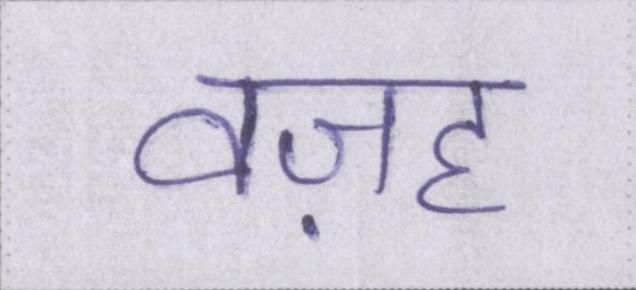 वज़ह